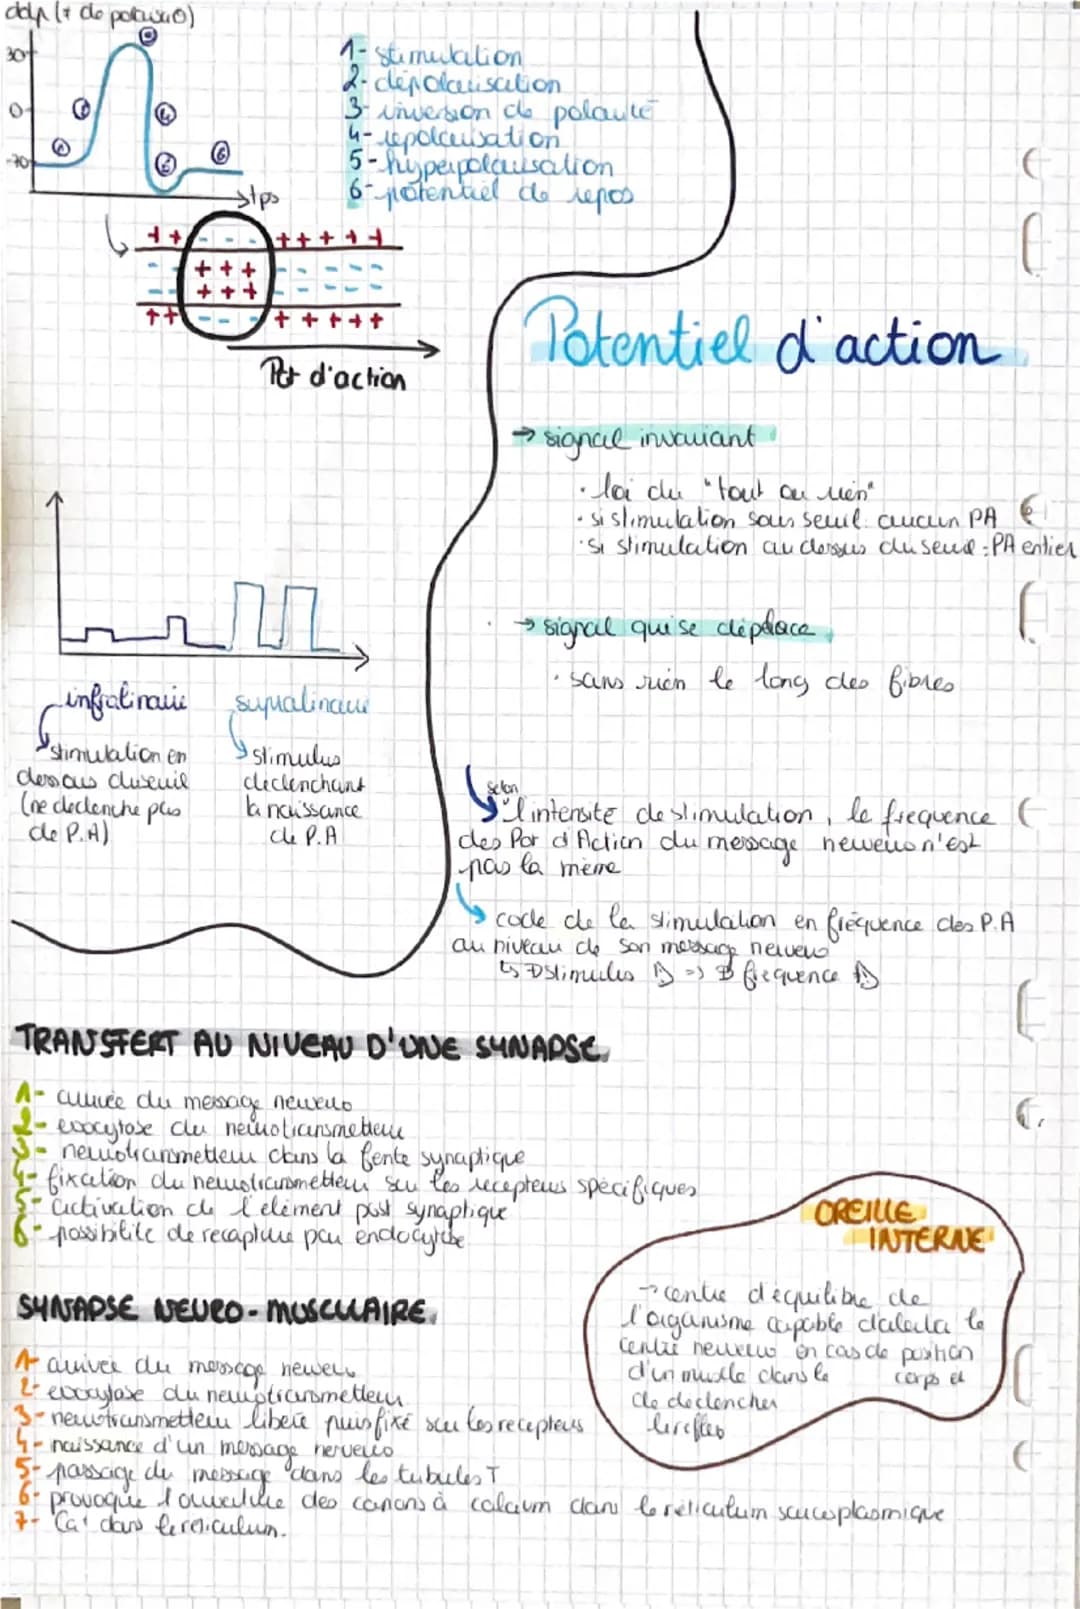 ddp (+ de polarisaO)
30
0
-70
1
2
3
4
5
6
tps
1- stimulation
2- dépolarisation
3- inversion de polarité
4- repolarisation
5- hyperpolarisation
6- potentiel de repos
Pot d'action
Potentiel d'action
→ signal invariant
• loi du "tout ou rien"
• si stimulation sous seuil: aucun PA
• si stimulation au dessus du seuil : PA entier
→ signal qui se déplace
• sans rien le long des fibres
infraliminaire
stimulation en
dessous du seuil
(ne declenche pas
de P.A)
supraliminaire
stimulus
declenchant
la naissance
de P.A
selon
l'intensité de stimulation, le frequence
des Pot d'Action du message nerveux n'est
pas la même
code de la stimulation en fréquence des P.A
au niveau de son message nerveux
↳ stimulus => frequence
TRANSFERT AU NIVEAU D'UNE SYNAPSE
1- arrivée du message nerveux
2- exocytose du neurotransmetteur
3- neurotransmetteur dans la fente synaptique
4- fixation du neurotransmetteur sur les recepteurs spécifiques
5- activation de l'élément post synaptique
6- possibilité de recapture par endocytose
SYNAPSE NEURO-MUSCULAIRE
1- arrivée du message nerveux
2- exocytose du neurotransmetteur
3- neurotransmetteur liberé puis fixé sur les recepteurs
4- naissance d'un message nerveux
5- passage du message dans les tubules T
6- provoque l'ouverture des canons à calcium dans le reticulum sarcoplasmique
7- Ca⁺ dans le reticulum.
OREILLE
INTERNE
→ centre d'équilibre de
l'organisme capable d'alerter le
centre nerveux en cas de position
d'un muscle dans le corps et
de declencher
le reflex